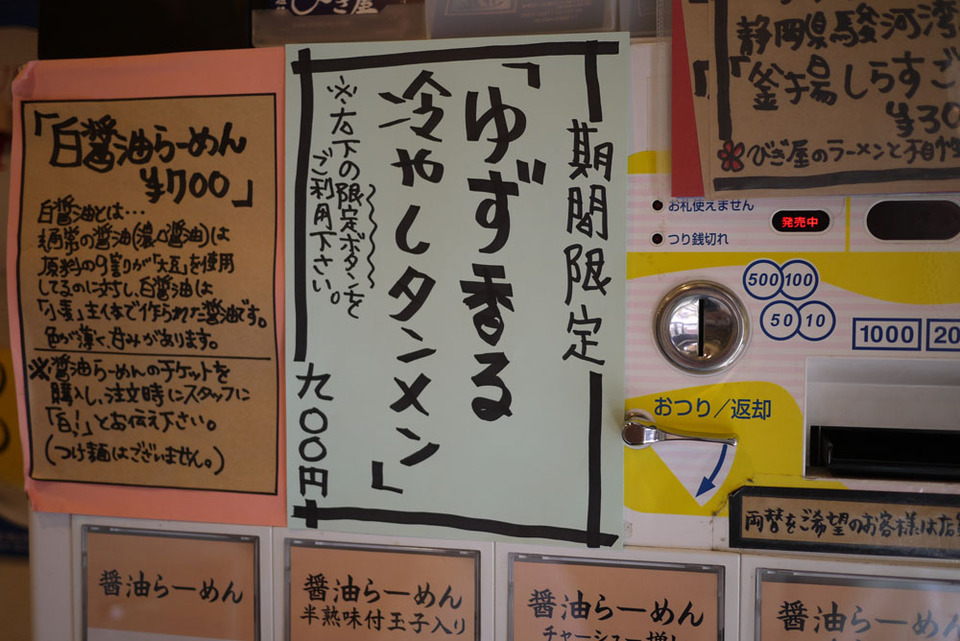 びき屋
「白醤油らーめん
¥700」
白醤油とは…
通常の醤油(濃口醤油)は
原料の9割りが「大豆」を使用
してるのに対し、白醤油は
「小麦」主体で作られた醤油です。
色が薄く、甘みがあります。
※醤油らーめんのチケットを
購入し、注文時にスタッフに
「白!」とお伝え下さい。
(つけ麺はございません。)
期間限定
「ゆず香る
冷やしタンメン」
※右下の限定ボタンを
ご利用下さい。
九〇〇円
静岡県駿河湾
「釜揚しらすご
¥30
※びぎ屋のラーメンと相性
お札使えません
つり銭切れ
発売中
500 100
50 10
1000
20
おつり/返却
両替をご希望のお客様は店
醤油らーめん
醤油らーめん
半熟味付玉子入り
醤油らーめん
チャーシュー増し
醤油らーめん